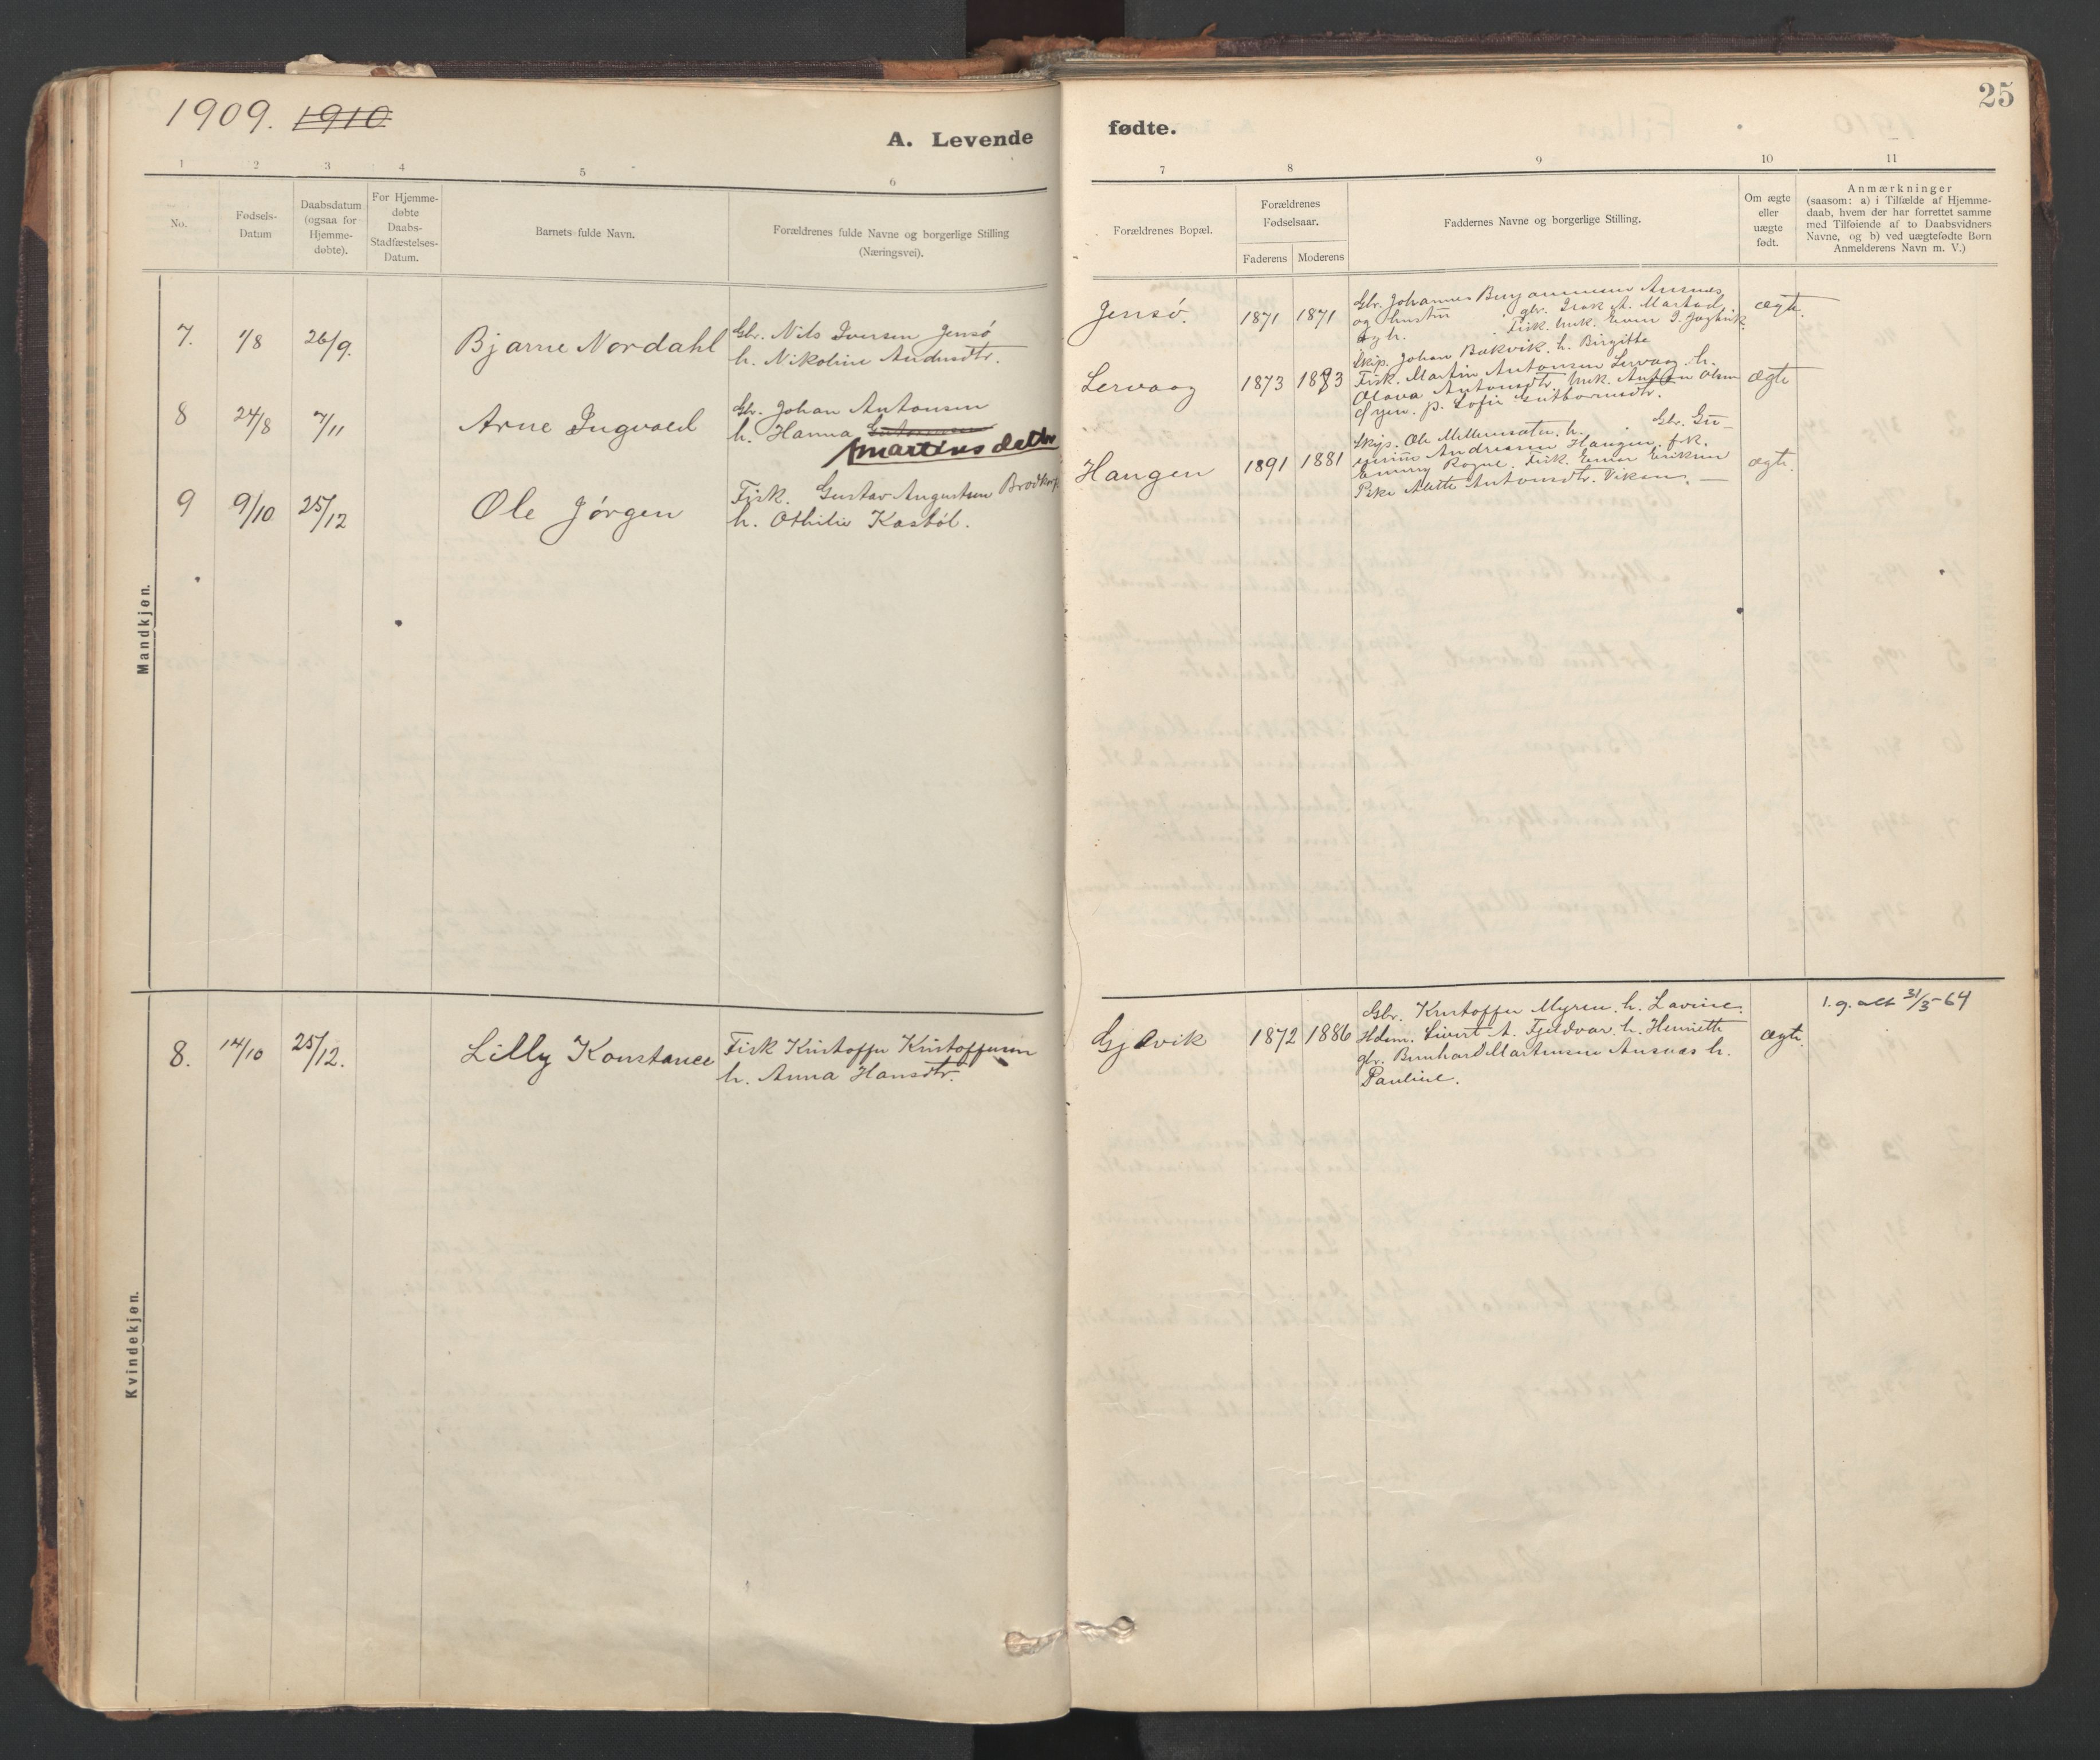 1909. 1910
A. Levende
1 2 3 4 5 6
No.
Fødsels-
Datum
Daabsdatum
(ogsaa for
Hjemme-
døbte).
For Hjemme-
døbte
Daabs-
Stadfæstelses-
Datum.
Barnets fulde Navn.
Forældrenes fulde Navne og borgerlige Stilling
(Næringsvei).
Mandkjøn.
7. 1/8 26/9. Bjarne Nordahl
Gbr. Nils Iversen Jensø
h. Nikoline
8 24/8 7/11 Arne Ingvald
Gbr. Johan Antonsen
h. Hanna
martinsdatter
9 9/10 25/12 Ole Jørgen
Fisk. Gustav Augustsen
h. Othilie Kastøl.
Kvindekjøn.
8. 14/10 25/12. Lilly Konstance
Fisk Kristoffer Kristoffersen
h. Anna Hansdtr.
25
fødte.
7 8 9 10 11
Forældrenes Bopæl.
Forældrenes
Fødselsaar.
Faderens Moderens
Faddernes Navne og borgerlige Stilling.
Om ægte
eller
uægte
født.
Anmærkninger
(saasom: a) i Tilfælde af Hjemme-
daab, hvem der har forrettet samme
med Tilføiende af to Daabsvidners
Navne, og b) ved uægtefødte Børn
Anmelderens Navn m. V.)
Jensø. 1871 1871
Gbr. Johannes Ansnæs
og hustru gbr. Isak A.
ægte.
Lervaag 1873 1883
Skip. Johan Bakvik. h. Birgitte
Fisk. Martin Antonsen Lervaag. h.
Olava Antonsdtr. Unk. Anton Olsen
p. Sofie
ægte
Hangen 1891 1881
Skip. Ole h. Gbr.
Andreasen Hangen. fk.
Fisk. Einar Eriksen
Pike Alette Antonsdtr. Viken.
ægte.
Gjevik 1872 1886
Gbr. Kristoffer Myren. h. Lavine.
Hdsm. Sivert A. Fjeldvær. h. Henriette
gbr. Bernhard Martinsen Ansnæs h.
Pauline.
ægte.
l. g. att 31/3-64